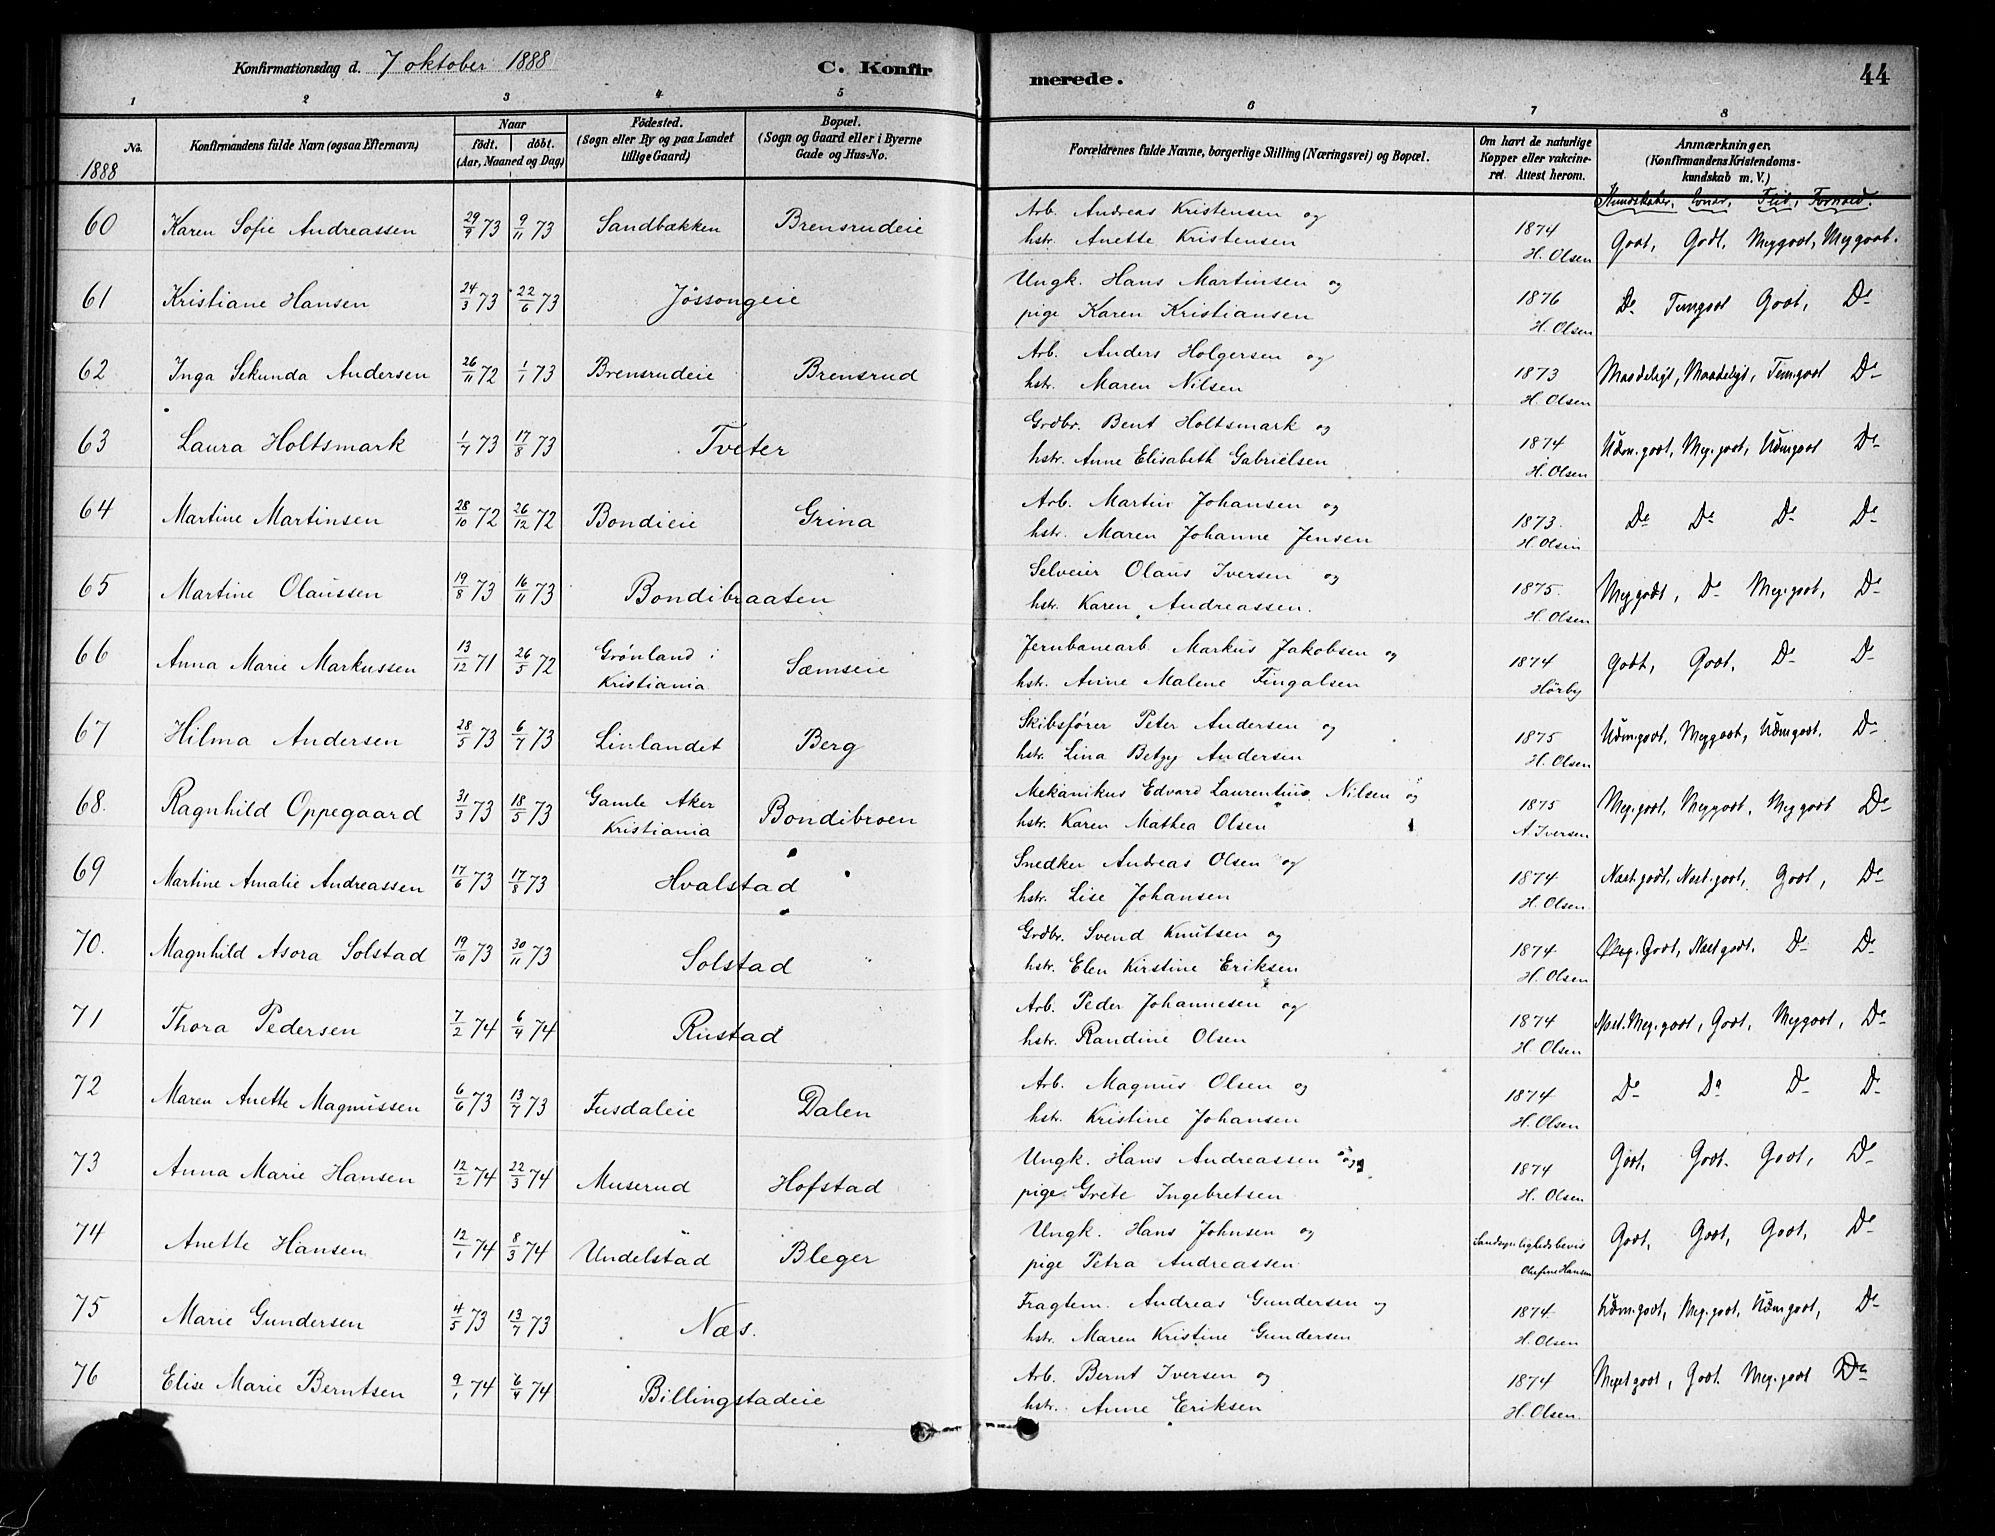 Konfirmationsdag d. 7 oktober 1888 C. Konfirmerede. 44
1 2 3 4 5 6 7 8
No. Konfirmandens fulde Navn (ogsaa Efternavn) Naar født. døbt. (Aar, Maaned og Dag) Fødested. (Sogn eller By og paa Landet tillige Gaard) Bopæl. (Sogn og Gaard eller i Byerne Gade og Hus-No. Forældrenes fulde Navne, borgerlige Stilling (Næringsvei) og Bopæl. Om havt de naturlige Kopper eller vakcineret. Attest herom. Anmærkninger. (Konfirmandens Kristendomskundskab m. V.)
1888
Kundskaber, Evner, Flid, Forhold.
60 Karen Sofie Andreassen 29/9 73 9/11 73 Sandbækken Brensrudeie Arb. Andreas Kristensen og 1874 Godt, Godt, Meg godt, Meg godt.
hstr. Anette Kristensen H. Olsen
61 Kristiane Hansen 24/3 73 22/6 73 Jøssongeie Ungk. Hans Martinsen og 1876 Do Temgodt Godt, Do
pige Karen Kristiansen H. Olsen
62 Inga Sekunda Andersen 26/11 72 1/1 73 Brensrudeie Brensrud Arb. Anders Holgersen og 1873 Maadeligt, Maadeligt, Tem. godt Do
hstr. Maren Nilsen H. Olsen
63 Laura Holtsmark 1/7 73 17/8 73 Tveter Grdbr. Bent Holtsmark og 1874 Udm. godt, Meg. godt, Udm godt Do
hstr. Anne Elisabeth Gabrielsen H. Olsen
64 Martine Martinsen 28/10 72 26/12 72 Bondieie Grina Arb. Martin Johansen og 1873. Do Do Do Do
hstr. Maren Johanne Jensen H. Olsen
65 Martine Olaussen 19/8 73 16/11 73 Bondibraaten Selveier Olaus Iversen og 1875. Meg godt, Do Meg. godt, Do
hstr. Karen Andreassen. H. Olsen
66 Anna Marie Markussen 13/12 71 26/5 72 Grønland i Kristiania Sæmseie Jernbanearb. Markus Jakobsen og 1874 Godt, Godt, Do Do
hstr. Anne Malene Fingalsen Hörby
67 Hilma Andersen 28/5 73 6/7 73 Linlandet Berg Skibsfører Peter Andersen og 1875 Udm. godt, Meg godt, Udm godt. Do
hstr. Lina Betzy Andersen H. Olsen
68. Ragnhild Oppegaard 31/3 73 18/5 73 Gamle Aker Kristiania Bondibroen Mekanikus Edvard Laurentius Nilsen og 1875 Meg. godt, Meg godt, Meg godt Do
hstr. Karen Mathea Olsen A. Iversen
69 Martine Amalie Andreassen 17/6 73 17/8 73 Hvalstad Snedker Andreas Olsen og 1874 Næst. godt, Næst. godt, Godt, Do
hstr. Lise Johansen H. Olsen
70. Magnhild Asora Solstad 19/10 73 30/11 73 Solstad Grdbr. Svend Knutsen og 1874 Meg. Godt, Næst godt. Do Do
hstr. Elen Kirstine Eriksen H. Olsen
71 Thora Pedersen 7/2 74 6/4 74 Rustad Arb. Peder Johannesen og 1874 Næst. Meg. godt, Godt, Meg godt, Do
hstr. Randine Olsen H. Olsen
72 Maren Anette Magnussen 6/6 73 13/7 73 Fusdaleie Dalen Arb. Magnus Olsen og 1874 Do Do Do Do
hstr. Kristine Johansen H. Olsen
73 Anna Marie Hansen 12/2 74 22/3 74 Muserud Hofstad Ungk. Hans Andreassen og 1874 Godt, Godt. Godt, Do
pige Grete Ingebretsen H. Olsen
74 Anette Hansen 12/1 74 8/3 74 Undelstad Bleger Ungk. Hans Johnsen og Sandsynlighedsbevis Godt, Godt, Godt, Do
pige Petra Andreassen Olefine Hansen
75 Marie Gundersen 4/5 73 13/7 73 Næs. Fragtem. Andreas Gundersen og 1874. Udm. godt, Meg. godt, Udm godt, Do
hstr. Maren Kristine Gundersen H. Olsen
76 Elise Marie Berntsen 9/1 74 6/4 74 Billingstadeie Arb. Bernt Iversen og 1874 Meget godt, Godt. Meg. godt Do
hstr. Anne Eriksen H. Olsen.